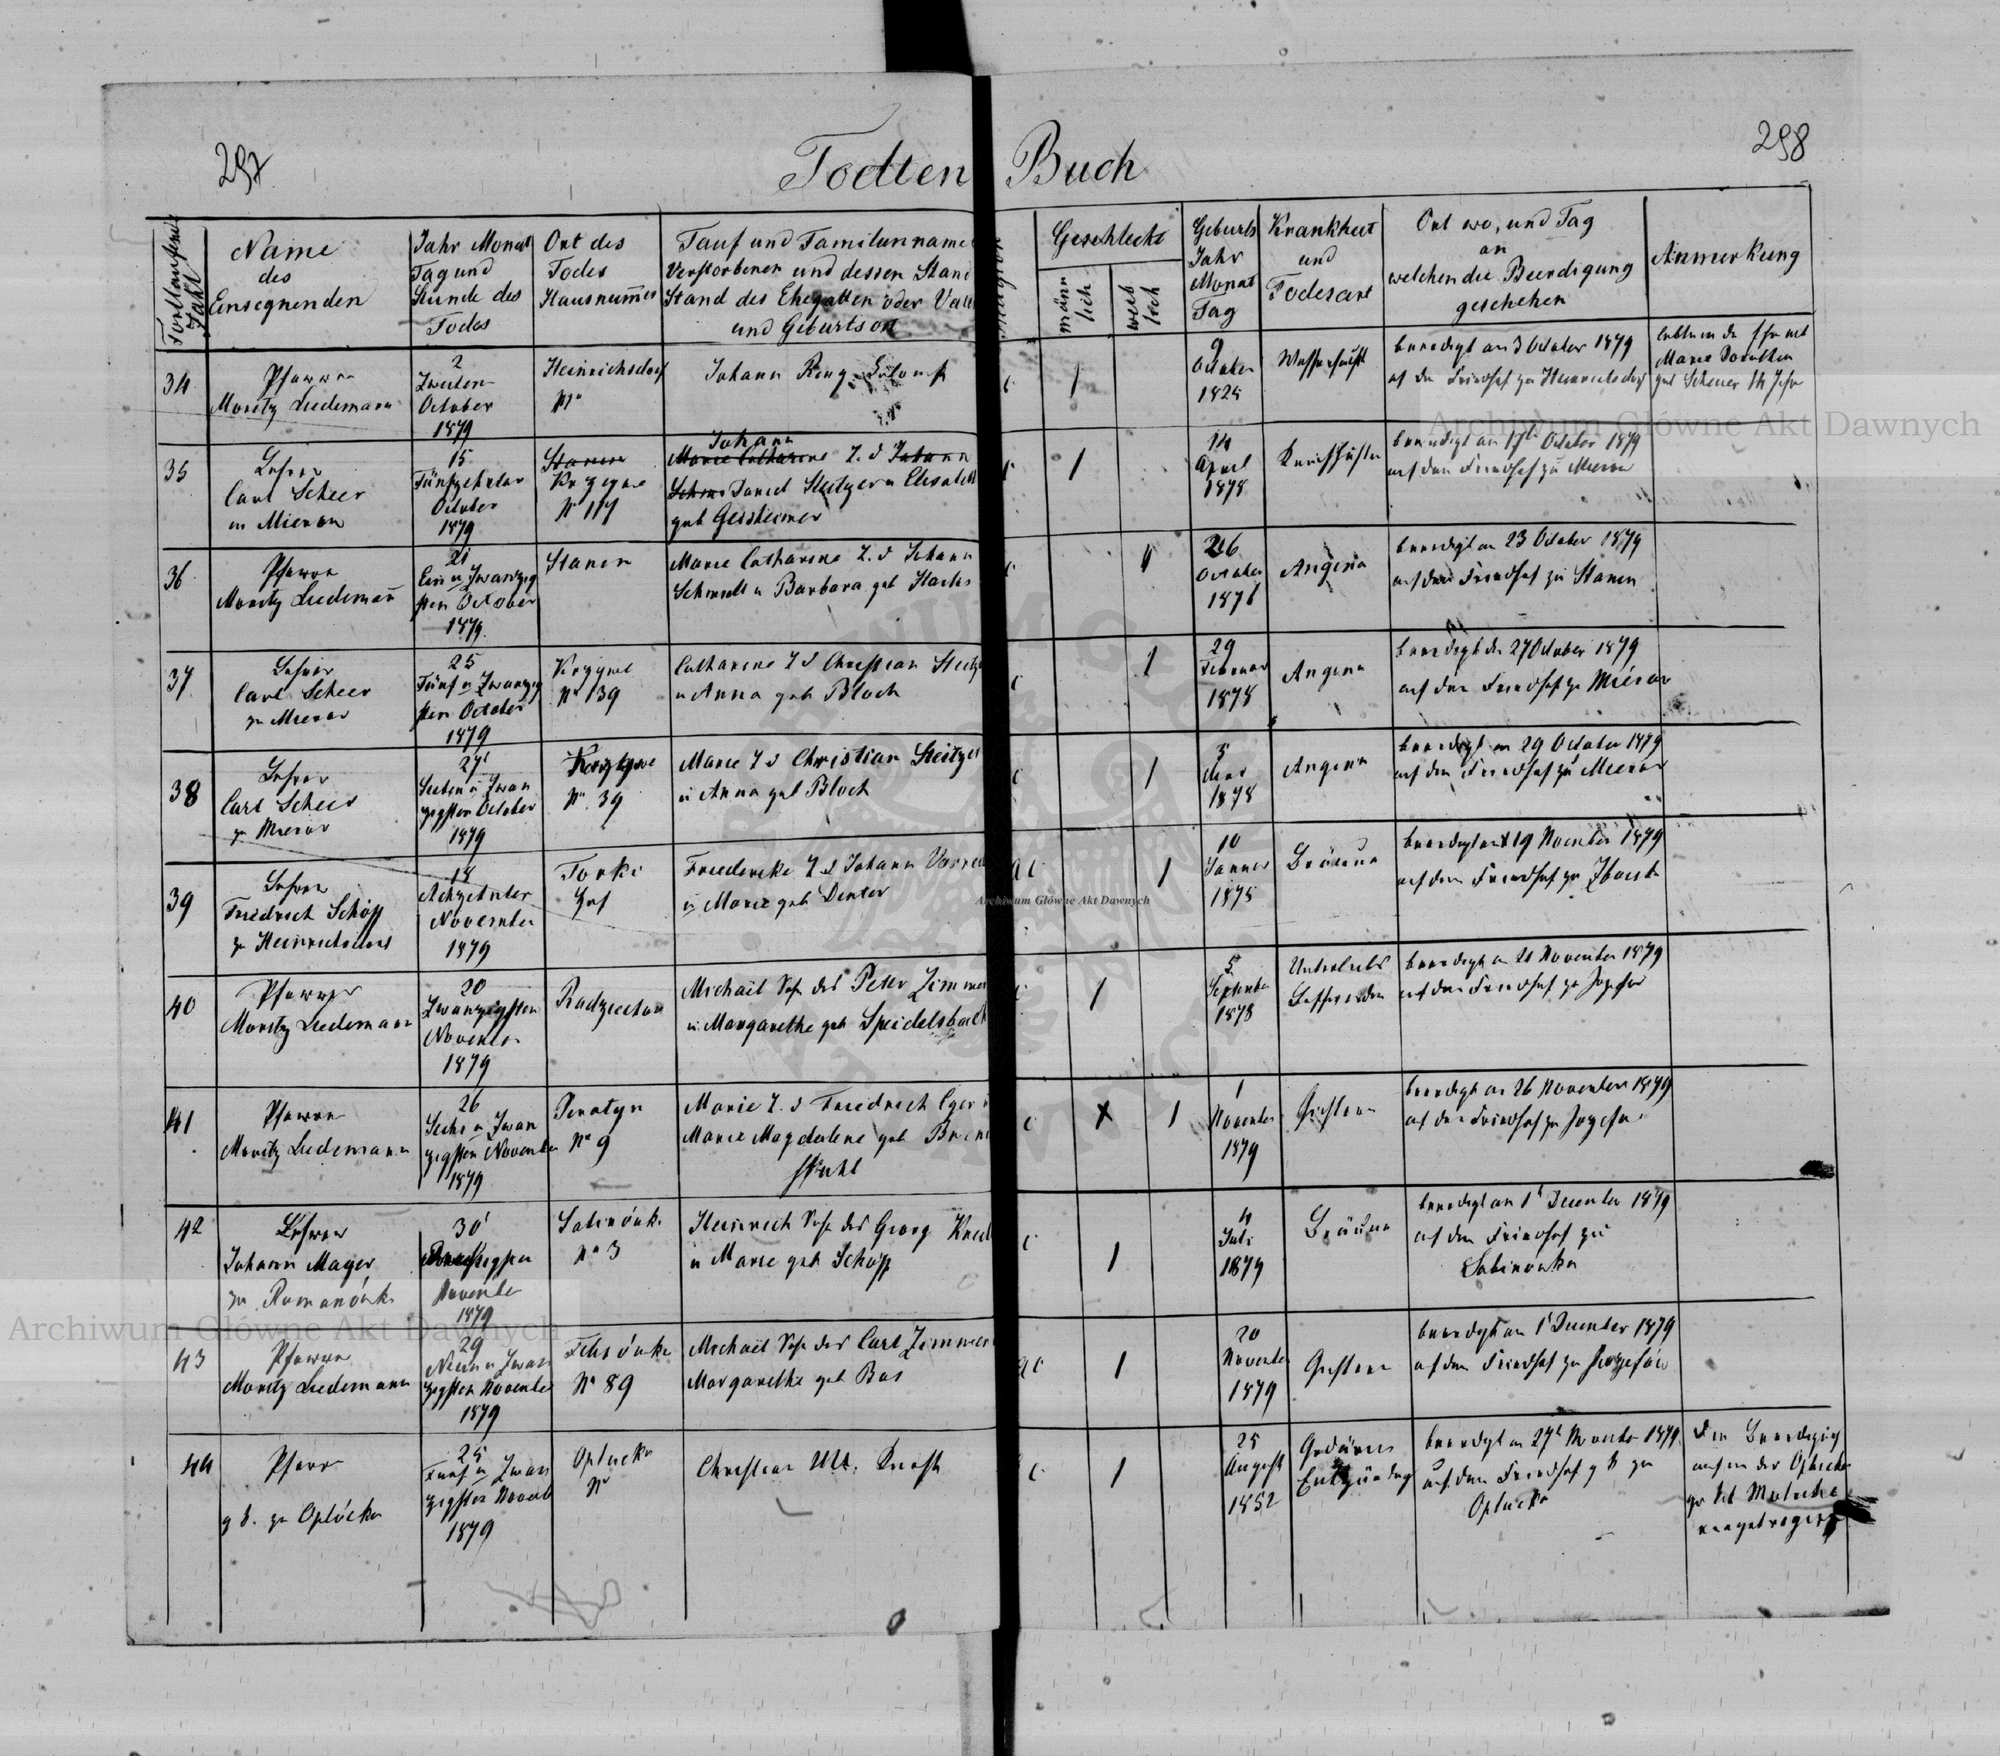 297
298
Todten Buch
Fortlaufende Zahl
Name
des
Einsegnenden
Jahr Monat
Tag und
Stunde des
Todes
Ort des
Todes
Hausnum̄er
Tauf und Familienname
Verstorbenen und dessen Stand
Stand des Ehegatten oder Vaters
und Geburtsort
Religion
Geschlecht
männ
lich
weib
lich
Geburts
Jahr
Monat
Tag
Krankheit
und
Todesart
Ort wo, und Tag
an
welchen die Beerdigung
geschehen
Anmerkung
34
Pfarrer
Moritz Liedemann
2
Zweiten
October
1879
Heinrichsdorf
Nr
Johann
1
9
October
Wassersucht
beerdigt am 3 October 1879
auf den Friedhof zu Heinrichsdorf
35
Lehrer
Carl Scheer
in Mierow
15
Fünfzehnter
October
1879
Stanin
Krzywe
Nr 117
Johann
Marie Catharine T. d Johann
Daniel Steitzer u Elisabeth
geb Gessheimer
1
14
April
1878
beerdigt am 17t October 1879
auf den Friedhof zu Mierow
36
Pfarrer
Moritz Liedemañ
21
Ein u Zwanzig
sten October
1879.
Stanin
Marie Catharine T. d Johann
Schmidt u Barbara geb Stachs
1
26
October
1876
Angina
beerdigt am 23 October 1879
auf den Friedhof zu Stanin
37
Lehrer
Carl Scheer
zu Mierow
25
Fünf u Zwanzig
sten October
1879
Krzywe
Nr 39
Catharine T d Christian Steitzer
u Anna geb Bloch
1
29
Februar
1878
Angina
beerdigt den 27 October 1879
auf den Friedhof zu Mierow
38
Lehrer
Carl Scheer
zu Mierow
27t
Sieben u Zwan
zigsten October
1879
Krzywe
Nr. 39
Marie T d Christian Steitzer
u Anna geb Bloch
1
Mai
1878
Angina
beerdigt am 29 October 1879
auf den Friedhof zu Mierow
39
Lehrer
Friedrich Schöpp
zu Heinrichsdorf
18
Achzehnter
November
1879
Torki
Hof
Friedericke T d Johann
u Marie geb Denter
1
10
Jänner
1875
Bräune
beerdigt am 19 November 1879
auf den Friedhof zu
40
Pfarrer
Moritz Liedemann
20
Zwanzigsten
November
1879
Radziechow
Michael Sohn des Peter Zimmer
u Margarethe geb Speidelsbach
1
5
September
1878
Unterleibs
beerdigt am 21 November 1879
auf den Friedhof zu Jozefow
41
Pfarrer
Moritz Liedemann
26
Sechs u Zwan
zigsten November
1879
Peratyn
Nr 9
Marie T. d Friedrich Eger u
Marie Magdalene geb
1
1
November
1879
beerdigt am 26 November 1879
auf den Friedhof zu Jozefow
42
Lehrer
Johann Mayer
zu Romanówka
30t
November
1879
Sabinówka
Nr 3
Heinrich Sohn des Georg
u Marie geb Schöpp
1
4
Juli
1879
Bräune
beerdigt am 1t December 1879
auf den Friedhof zu
Sabinówka
43
Pfarrer
Moritz Liedemann
29
Neun u Zwan
zigsten November
1879
Nr 89
Michael Sohn des Carl Zimmer
Margarethe geb Bas
1
20
November
1879
beerdigt am 1t December 1879
auf den Friedhof zu Jozefów
44
Pfarr
g k. zu Oplócko
25
Fünf u Zwan
zigsten Novemb
1879
Oplucko
Nr
Christian
1
25
August
1852
Gedärm
Entzündung
beerdigt am 27t November 1879
auf den Friedhof g k zu
Oplucko
Archiwum Główne Akt Dawnych
Archiwum Główne Akt Dawnych
Archiwum Główne Akt Dawnych